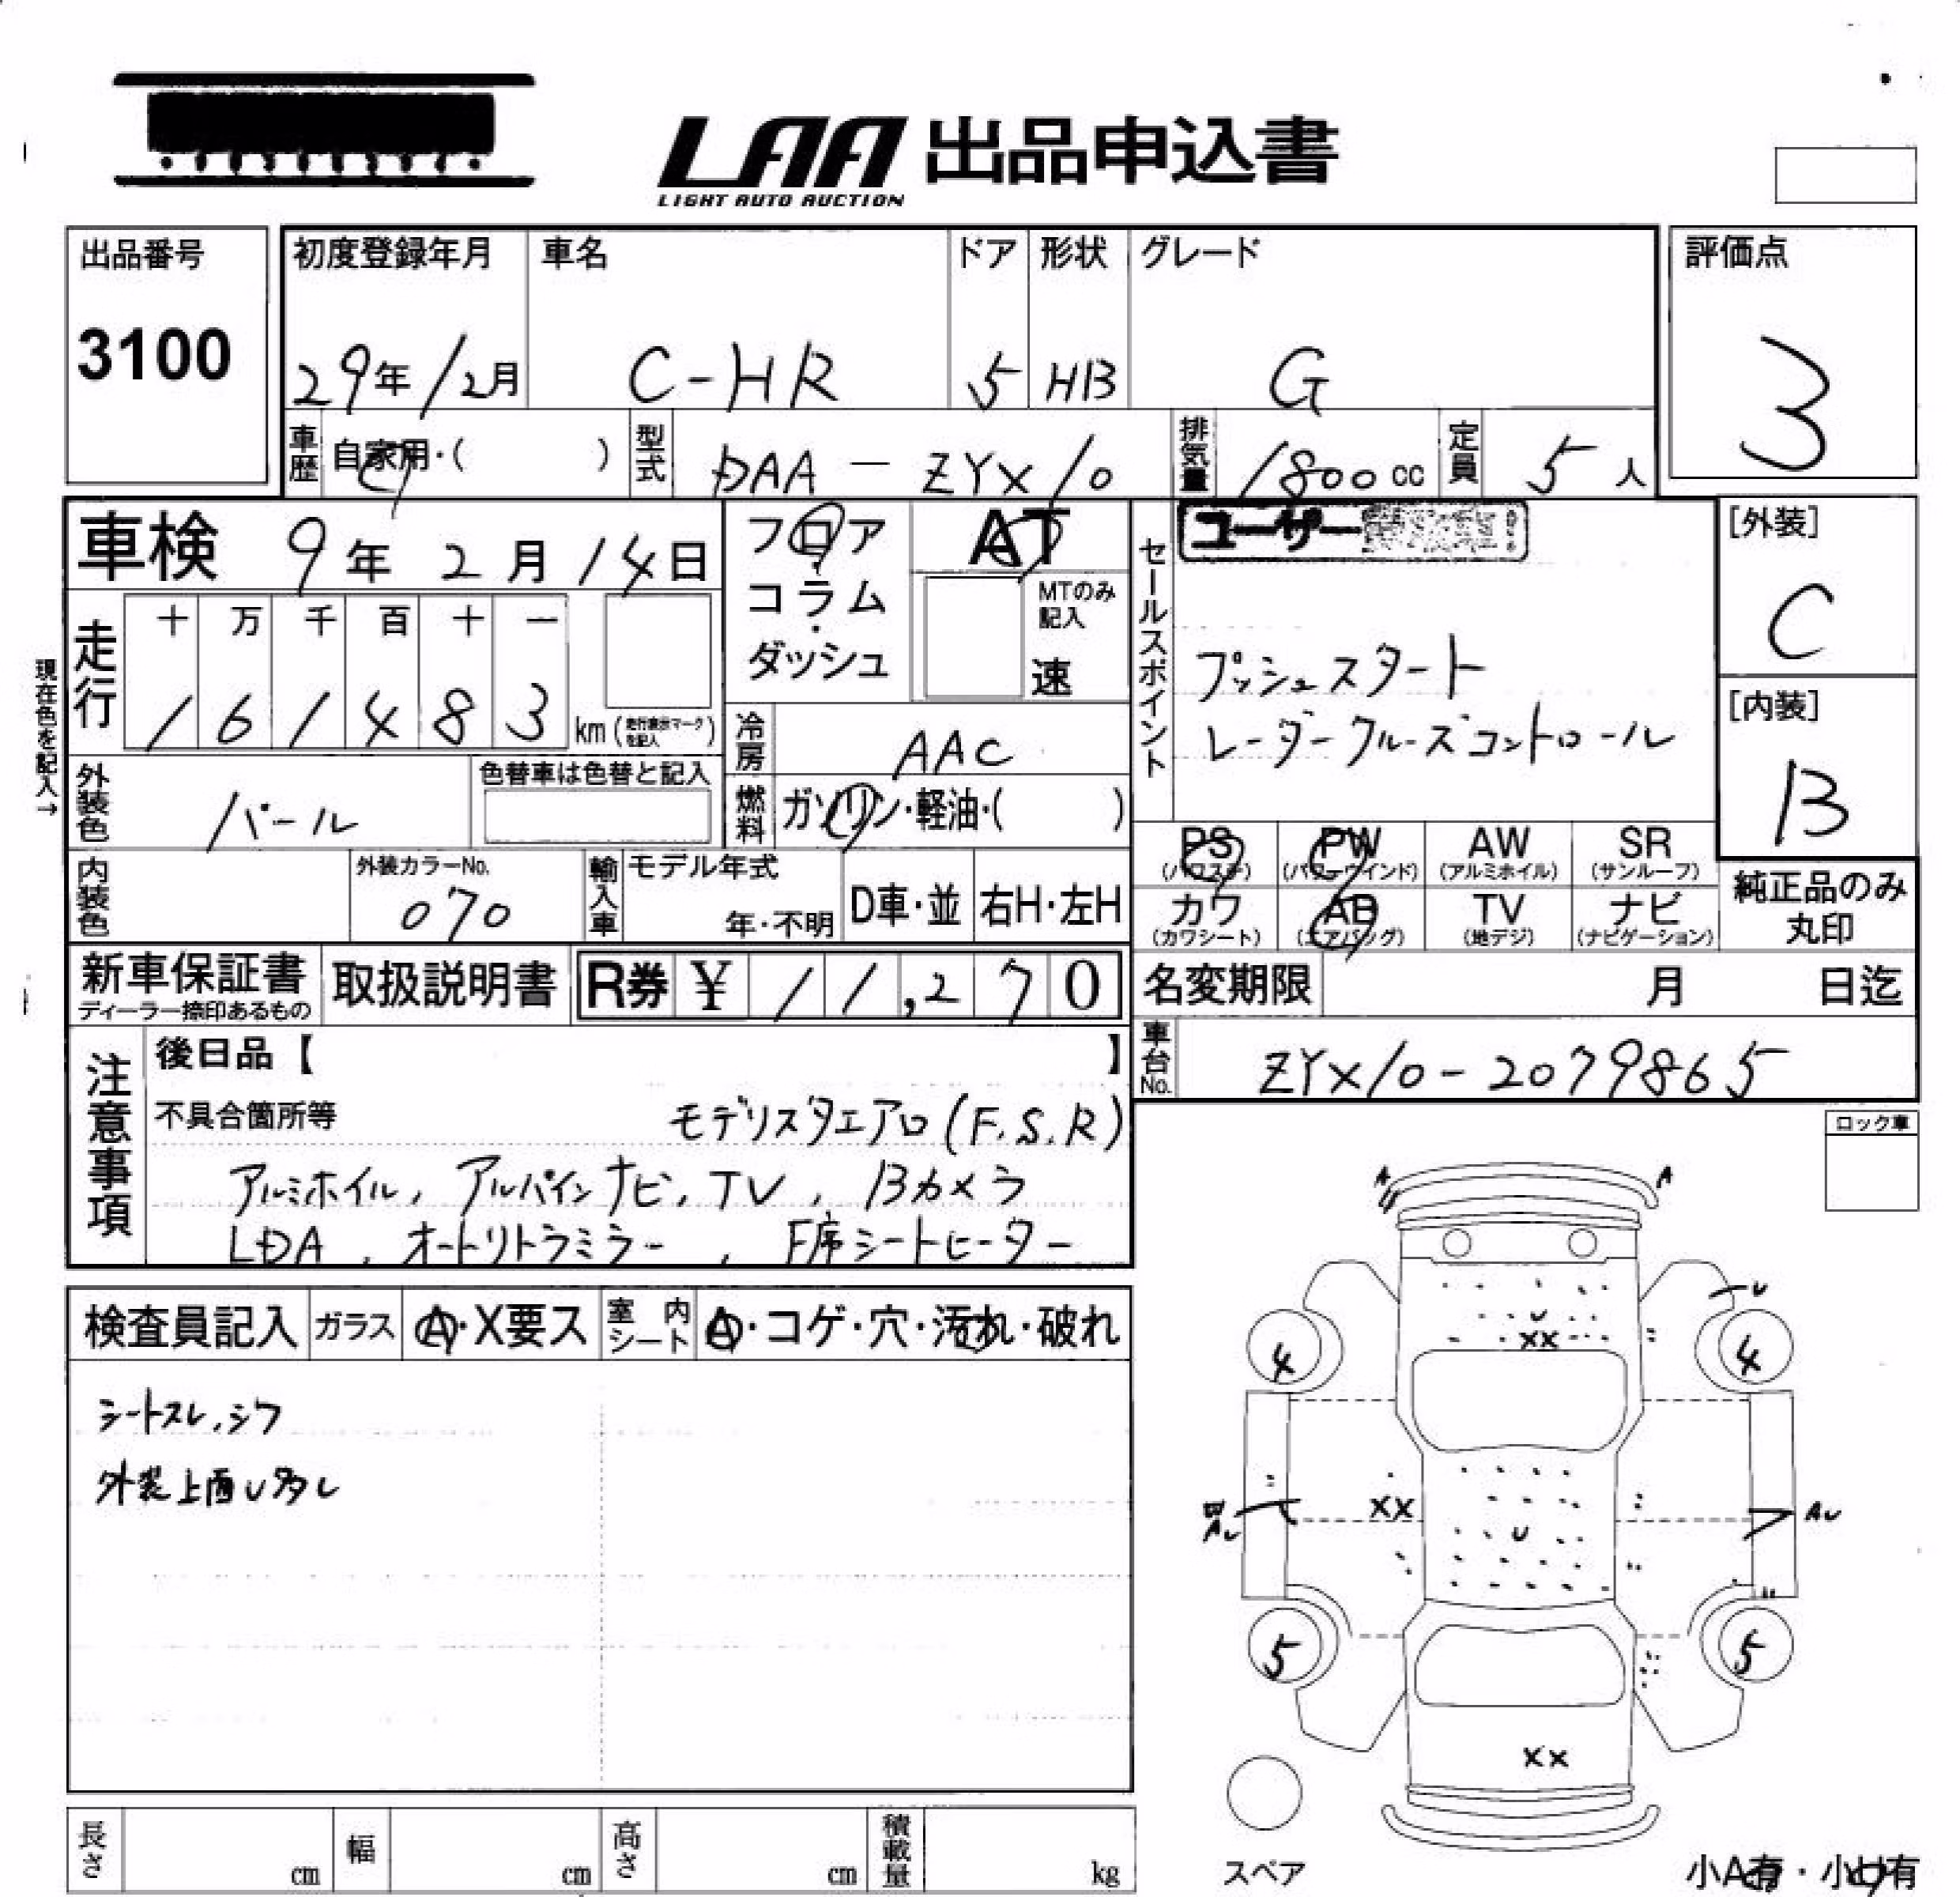 LAA 出品申込書
LIGHT AUTO AUCTION
出品番号
3100
初度登録年月
29年12月
車名
C-HR
ドア
5
形状
HB
グレード
G
評価点
3
車歴
自家用・( )
型式
DAA-ZYX10
排気量
1800cc
定員
5人
車検 9年2月14日
フロア
コラム
・
ダッシュ
AT
MTのみ
記入
速
セールスポイント
ユーザー
プッシュスタート
レーダークルーズコントロール
[外装]
C
[内装]
B
現在色を記入→
走行
十 万 千 百 十 一
1 6 1 4 8 3 km(走行表示マークを記入)
冷房
AAC
外装色
パール
色替車は色替と記入
燃料
ガソリン・軽油・( )
PS
(パワステ)
PW
(パワーウインド)
AW
(アルミホイル)
SR
(サンルーフ)
カワ
(カワシート)
AB
(エアバッグ)
TV
(地デジ)
ナビ
(ナビゲーション)
純正品のみ
丸印
内装色
外装カラーNo.
070
輸入車
モデル年式
年・不明
D車・並
右H・左H
新車保証書
ディーラー捺印あるもの
取扱説明書
R券 ¥ 11,270
名変期限 月 日迄
車台No.
ZYX10-2079865
注意事項
後日品【 】
不具合箇所等
モデリスタエアロ(F.S.R)
アルミホイル, アルパインナビ, TV, Bカメラ
LDA, オートリトラミラー, F席シートヒーター
ロック車
検査員記入
ガラス
A・X要ス
室内シート
A・コゲ・穴・汚れ・破れ
シートスレ,シワ
外装上面U多し
A A
U
U
XX
4 4
XX
U
AU
AU
5 5
XX
スペア
小A有・小U有
長さ cm
幅 cm
高さ cm
積載量 kg